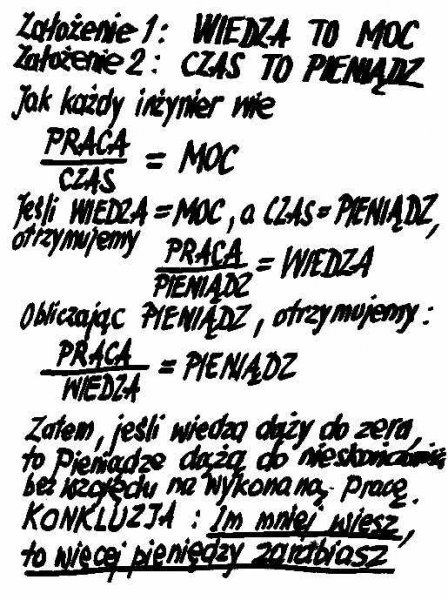 Założenie 1: WIEDZA TO MOC
Założenie 2: CZAS TO PIENIĄDZ
Jak każdy inżynier wie
PRACA
CZAS = MOC
Jeśli WIEDZA = MOC, a CZAS = PIENIĄDZ,
otrzymujemy
PRACA
PIENIĄDZ = WIEDZA
Obliczając PIENIĄDZ, otrzymujemy:
PRACA
WIEDZA = PIENIĄDZ
Zatem, jeśli wiedza dąży do zera,
to Pieniądze dążą do nieskończoności
bez względu na wykonaną pracę.
KONKLUZJA: Im mniej wiesz,
to więcej pieniędzy zarabiasz